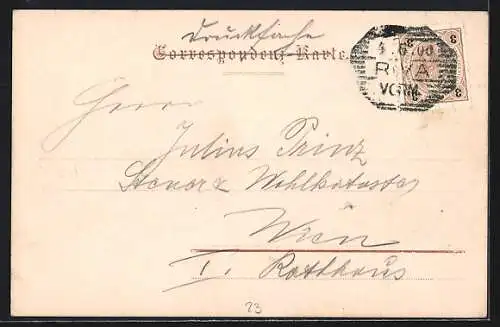 Drucksache
Correspondenz-Karte.
3 3
6 00
RIVA
VORM
3 3
Herrn
Julius Prinz
Steuer & Wahlkataster
Wien
I. Rathhaus
23